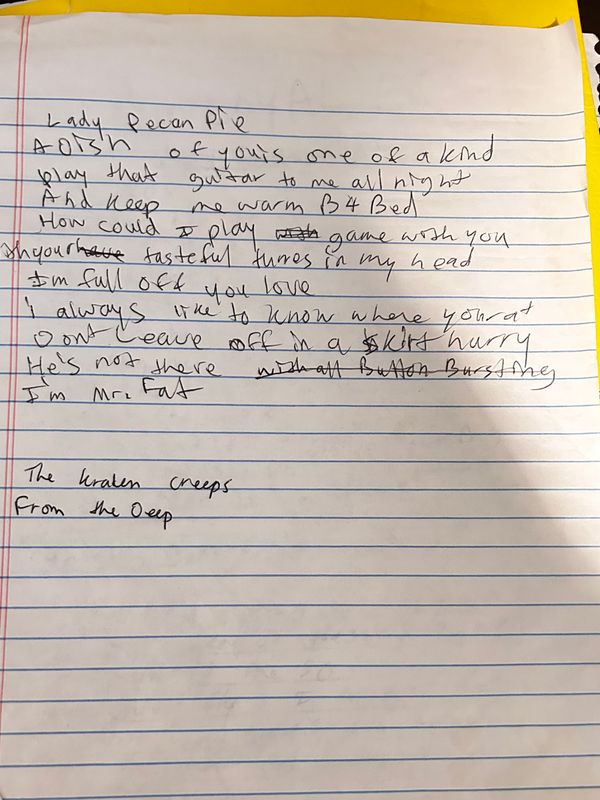 Lady Pecan Pie
A Dish of yours one of a kind
play that guitar to me all night
And keep me warm B4 Bed
How could I play with game with you
thyour have tasteful tunes in my head
I'm full off you love
i always like to know where your at
Dont Leave off in a skirt hurry
He's not there with all Button Bursting
I'm Mr. Fat
The kraken creeps
From the Deep